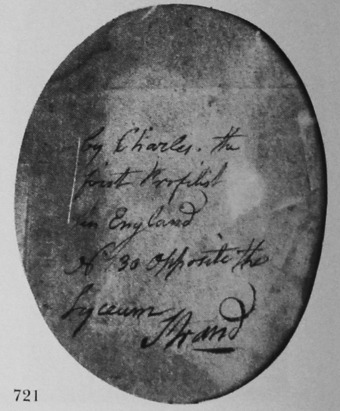 by Charles. the
first Profilist
in England
No 30 Opposite the
Lyceum
Strand
721